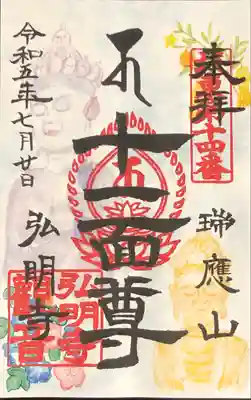 奉拝
十四番
瑞應山
十一面尊
令和五年七月廿日
弘明寺
弘明寺
觀音